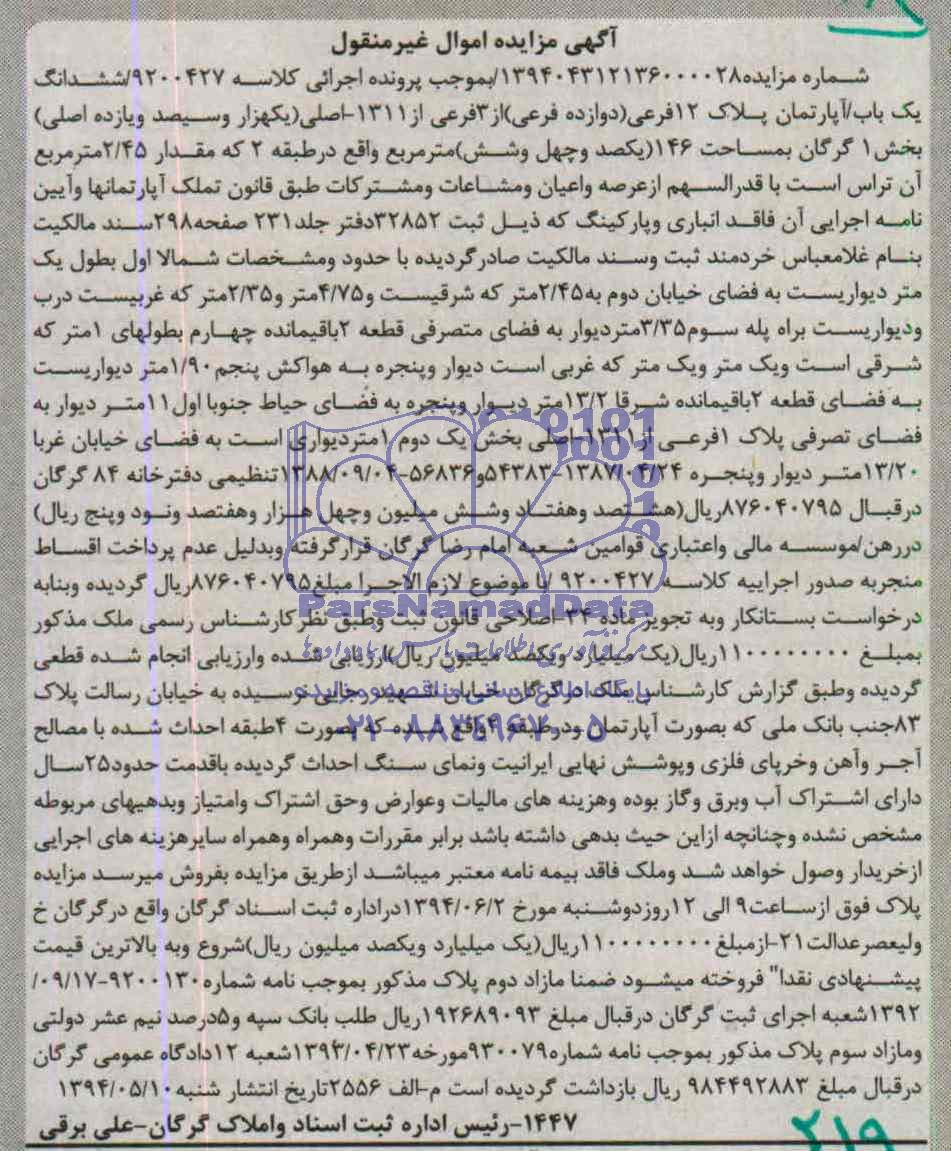 آگهی مزایده اموال غیرمنقول
شماره مزایده۱۳۹۴۰۴۳۱۲۱۳۶۰۰۰۰۲۸/بموجب پرونده اجرائی کلاسه ۹۲۰۰۴۲۷/ششدانگ
یک باب/آپارتمان پلاک ۱۲فرعی(دوازده فرعی)از۳فرعی از۱۳۱۱-اصلی(یکهزار وسیصد ویازده اصلی)
بخش۱ گرگان بمساحت ۱۴۶(یکصد وچهل وشش)مترمربع واقع درطبقه ۲ که مقدار ۲/۴۵مترمربع
آن تراس است با قدرالسهم ازعرصه واعیان ومشاعات ومشترکات طبق قانون تملک آپارتمانها وآیین
نامه اجرایی آن فاقد انباری وپارکینگ که ذیل ثبت ۳۲۸۵۲دفتر جلد۲۳۱ صفحه۲۹۸سند مالکیت
بنام غلامعباس خردمند ثبت وسند مالکیت صادرگردیده با حدود ومشخصات شمالا اول بطول یک
متر دیواریست به فضای خیابان دوم به۲/۴۵متر که شرقیست و۴/۷۵متر و۲/۳۵متر که غربیست درب
ودیواریست براه پله سوم۳/۳۵متردیوار به فضای متصرفی قطعه ۲باقیمانده چهارم بطولهای ۱متر که
شرقی است ویک متر ویک متر که غربی است دیوار وپنجره به هواکش پنجم۱/۹۰متر دیواریست
به فضای قطعه ۲باقیمانده شرقا ۱۳/۲متر دیوار وپنجره به فضای حیاط جنوبا اول۱۱متر دیوار به
فضای تصرفی پلاک ۱فرعی از۱۳۱۱-اصلی بخش یک دوم ۱متردیواری است به فضای خیابان غربا
۱۳/۲۰متر دیوار وپنجره ۱۳۸۷/۰۴/۲۴-۵۴۳۸۳و۵۶۸۳۶-۱۳۸۸/۰۹/۰۴تنظیمی دفترخانه ۸۴ گرگان
درقبال ۸۷۶۰۴۰۷۹۵ریال(هشتصد وهفتاد وشش میلیون وچهل هزار وهفتصد ونود وپنج ریال)
دررهن/موسسه مالی واعتباری قوامین شعبه امام رضا گرگان قرارگرفته وبدلیل عدم پرداخت اقساط
منجربه صدور اجراییه کلاسه ۹۲۰۰۴۲۷ /با موضوع لازم الاجرا مبلغ۸۷۶۰۴۰۷۹۵ریال گردیده وبنابه
درخواست بستانکار وبه تجویز ماده ۳۴-اصلاحی قانون ثبت وطبق نظرکارشناس رسمی ملک مذکور
بمبلغ ۱۱۰۰۰۰۰۰۰۰ریال(یک میلیارد ویکصد میلیون ریال)ارزیابی شده وارزیابی انجام شده قطعی
گردیده وطبق گزارش کارشناس ملک درگرگان خیابان شهید رجایی نرسیده به خیابان رسالت پلاک
۸۳جنب بانک ملی که بصورت آپارتمان ودرطبقه ۴واقع شده که بصورت ۴طبقه احداث شده با مصالح
آجر وآهن وخرپای فلزی وپوشش نهایی ایرانیت ونمای سنگ احداث گردیده باقدمت حدود۲۵سال
دارای اشتراک آب وبرق وگاز بوده وهزینه های مالیات وعوارض وحق اشتراک وامتیاز وبدهیهای مربوطه
مشخص نشده وچنانچه ازاین حیث بدهی داشته باشد برابر مقررات وهمراه وهمراه سایرهزینه های اجرایی
ازخریدار وصول خواهد شد وملک فاقد بیمه نامه معتبر میباشد ازطریق مزایده بفروش میرسد مزایده
پلاک فوق ازساعت۹ الی ۱۲روزدوشنبه مورخ ۱۳۹۴/۰۶/۲دراداره ثبت اسناد گرگان واقع درگرگان خ
ولیعصرعدالت۲۱-ازمبلغ۱۱۰۰۰۰۰۰۰۰ریال(یک میلیارد ویکصد میلیون ریال)شروع وبه بالاترین قیمت
پیشنهادی نقدا" فروخته میشود ضمنا مازاد دوم پلاک مذکور بموجب نامه شماره۹۲۰۰۱۳۰-۰۹/۱۷/
۱۳۹۲شعبه اجرای ثبت گرگان درقبال مبلغ ۱۹۲۶۸۹۰۹۳ریال طلب بانک سپه و۵درصد نیم عشر دولتی
ومازاد سوم پلاک مذکور بموجب نامه شماره۹۳۰۰۷۹مورخه۱۳۹۳/۰۴/۲۳شعبه ۱۲دادگاه عمومی گرگان
درقبال مبلغ ۹۸۴۴۹۲۸۸۳ ریال بازداشت گردیده است م-الف ۲۵۵۶تاریخ انتشار شنبه۱۳۹۴/۰۵/۱۰
۱۴۴۷-رئیس اداره ثبت اسناد واملاک گرگان-علی برقی
ParsNamadData
پایگاه اطلاع رسانی مناقصه و مزایده
۰۲۱-۸۸۳۴۹۶۷۰-۵
۲۱۹